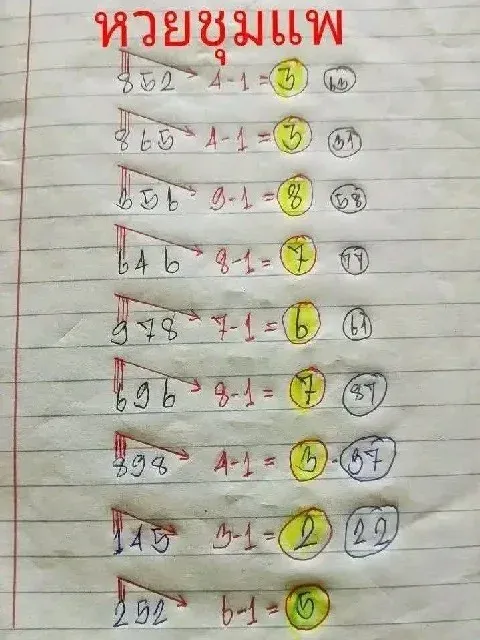 หวยชุมแพ
852 4-1 = 3
865 4-1 = 3 37
656 9-1 = 8 58
646 8-1 = 7 77
978 7-1 = 6 61
696 8-1 = 7 87
898 4-1 = 3 - 37
145 3-1 = 2 22
252 6-1 = 5